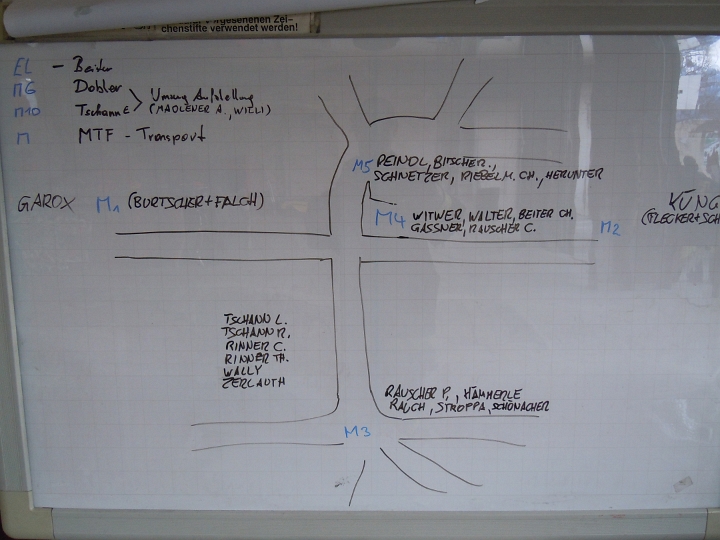 vorgesehenen Zei-
chenstifte verwendet werden!
EL - Beiter
M6 Dobler
M10 Tschann E
Umzug Aufstellung
(MADLENER A., WILLI)
M MTF - Transport
M5 REINDL, BITSCHE R.,
SCHNETZER, RIEBEL M. CH., HERUNTER
GAROX M1 (BURTSCHER + FALCH)
M4 WITWER, WALTER, BEITER CH.
GASSNER, RAUSCHER C.
M2
KÜNG
(FLECKER + SCH
TSCHANN L.
TSCHANN R.
RINNER C.
RINNER TH.
WALLY
ZERLAUTH
RAUSCHER P., HÄMMERLE
RAUCH, STROPPA, SCHÖNACHER
M3